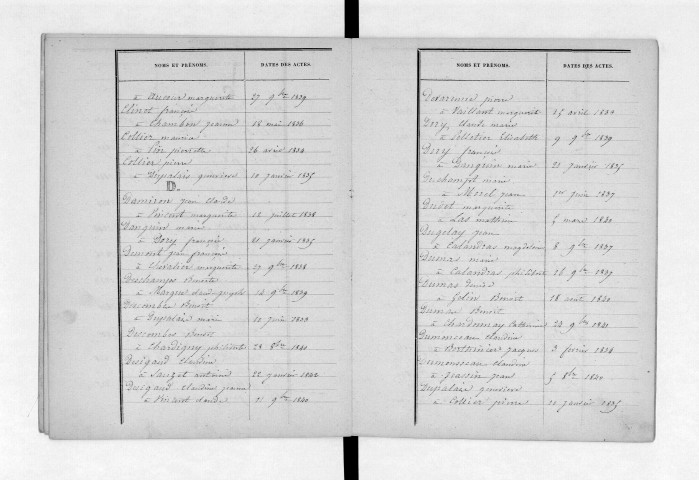 NOMS ET PRÉNOMS. DATES DES ACTES.
à Aucour marguerite 27 9bre 1839
Clinot françois
à Chambon jeanne 18 mai 1836
Collier maurice
à pierrette 26 avril 1834
Collier pierre
à Dupalais 20 janvier 1835
D.
Damiron jean claude
à Vincent marguerite 12 juillet 1838
Danguin marie
à Dory françois 21 janvier 1835
Dumont jean françois
à Chevalier marguerite 27 9bre 1838
Deschamps Benoite
à 14 9bre 1839
Descombes Benoit
à Dupalais marie 10 juin 1840
Descombes Benoit
à Chardigny philibert 28 8bre 1840
Dusigaud claudine
à Sauzet antoine 22 janvier 1842
Dusigaud claudine jeanne
à Vincent claude 21 9bre 1840
NOMS ET PRÉNOMS. DATES DES ACTES.
pierre
à Vaillant marguerite 25 avril 1834
Dory, claude marie
à Pelletier Elisabeth 9 9bre 1839
Dory françois
à Danguin marie 21 janvier 1835
Duchampt marie
à Morel jean 1er juin 1837
Dubot marguerite
à Las mathieu 5 mars 1840
Dugelay jean
à Calandras magdeleine 8 9bre 1837
Dumas marie
à Calandras philibert 28 9bre 1837
Dumas
à Gelin Benoit 18 aout 1840
Dumas Benoit
à Chardonnay Catherine 24 9bre 1841
Dumonceau claudine
à Bertheier jacques 3 fevrier 1834
Dumonceau claudine
à jean 5 8bre 1840
Dupalais
à Collier pierre 20 janvier 1835